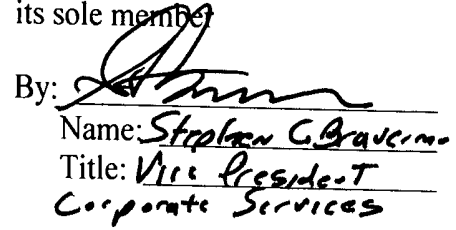 its sole member
By:
Name: Stephen C. Braverma
Title: Vice President
Corporate Services